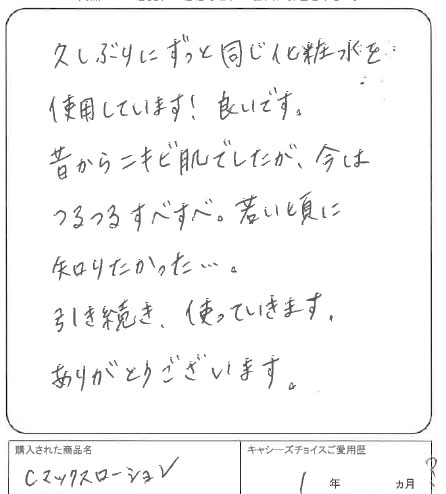 久しぶりにずっと同じ化粧水を
使用しています！良いです。
昔からニキビ肌でしたが、今は
つるつるすべすべ。若い頃に
知りたかった…。
引き続き、使っていきます。
ありがとうございます。
購入された商品名
キャシーズチョイスご愛用歴
Cマックスローション
1年 ヵ月